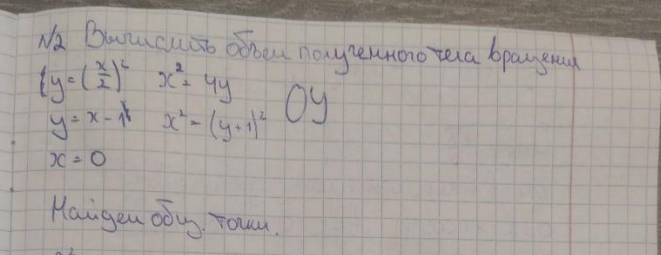 №2 Вычислить объем полученного тела вращения
{y=(x/2)² x²=4y
y=x-1 x²=(y+1)² OY
x=0
Найдем общ. точки.